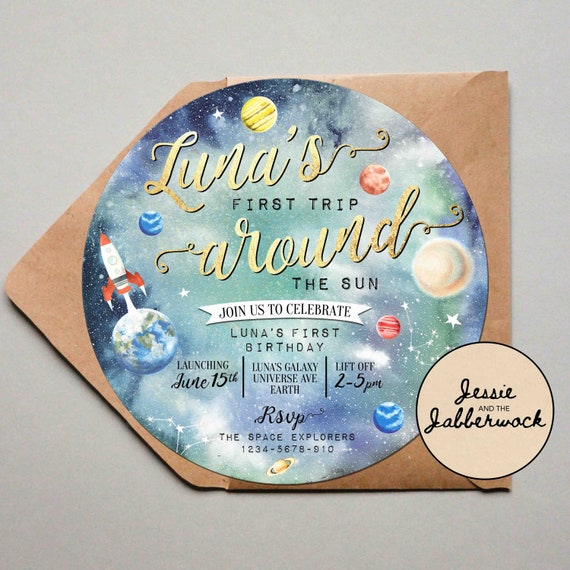 Luna's
FIRST TRIP
around
THE SUN
JOIN US TO CELEBRATE
LUNA'S FIRST
BIRTHDAY
LAUNCHING
June 15th
LUNA'S GALAXY
UNIVERSE AVE
EARTH
LIFT OFF
2-5pm
Rsvp
THE SPACE EXPLORERS
1234-5678-910
Jessie
AND THE
Jabberwock